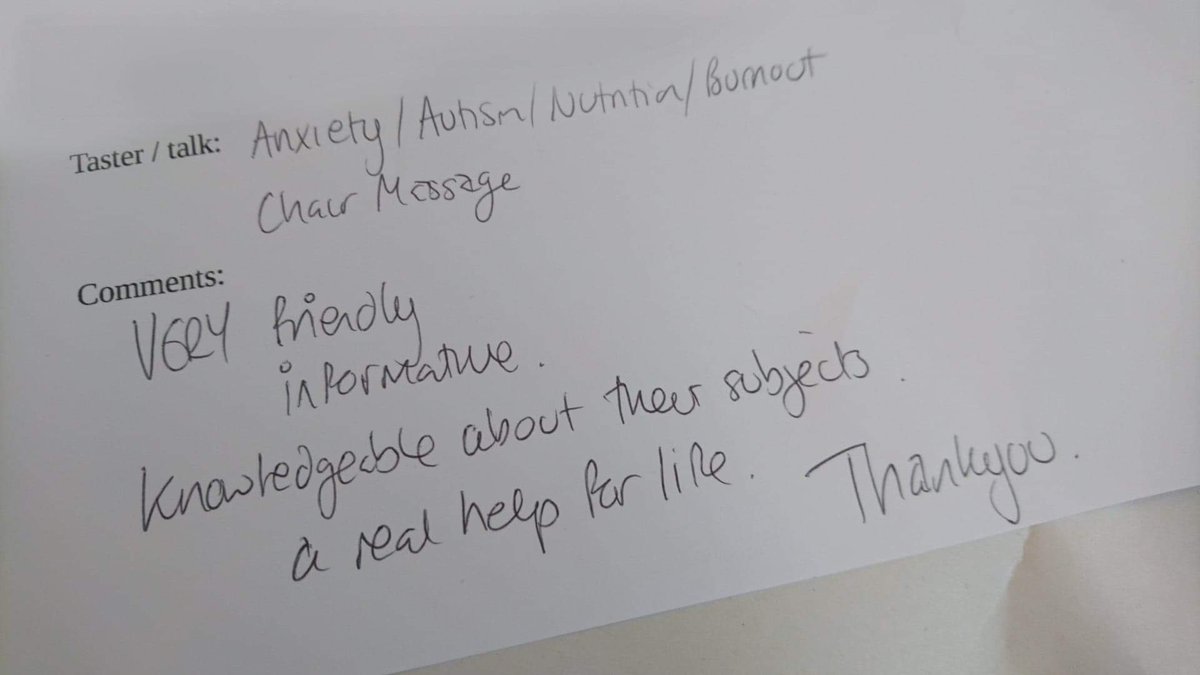 Taster / talk: Anxiety / Autism / Nutrition / Burnout
Chair Message
Comments:
VERY friendly
informative.
Knowledgeable about their subjects.
a real help for life. Thankyou.